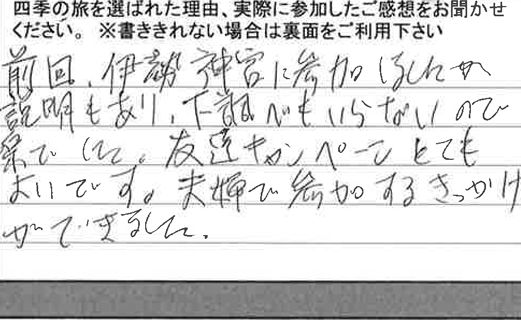 四季の旅を選ばれた理由、実際に参加したご感想をお聞かせ
ください。 ※書ききれない場合は裏面をご利用下さい
前回、伊勢神宮に参加しましたが
説明もあり、下調べもいらないので
楽でした。友達キャンペーンとても
よいです。夫婦で参加するきっかけ
ができました。